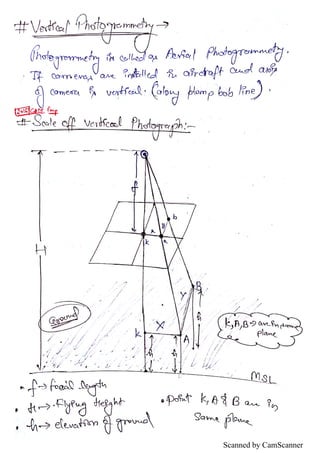 # Vertical Photogrammetry →
Photogrammetry is called as Aerial Photogrammetry.
· If cameras are installed in aircraft and axis
of camera is vertical. (along plumb bob line).
# Scale off vertical Photograph:-
f
b
y
k x a
H
B
Y
Ground
k X A
h h h
k,A,B → are in same
plane
MSL
• f → focal length
• H → Flying Height
• h → elevation of ground
• point k, A & B are in
same plane
Scanned by CamScanner